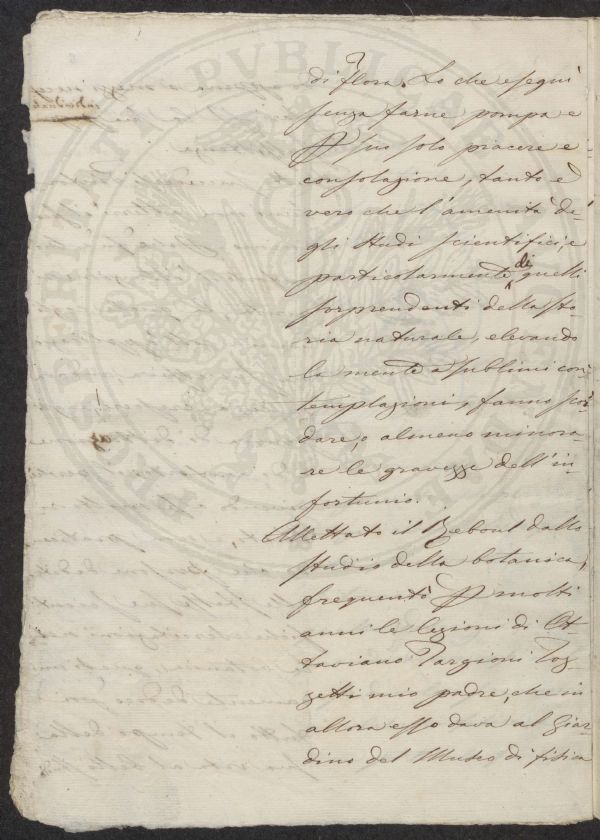 di Flora. Lo che eseguì
senza farne pompa e
P suo solo piacere e
consolazione, tanto è
vero che l'amenità de-
gli studi scientifici, e
particolarmente di quelli
sorprendenti della sto-
ria naturale, elevando
la mente a sublimi con-
templazioni, fanno scor-
dare, o almeno minora-
re le gravezze dell'in-
fortunio.
Allettato il Reboul dallo
studio della botanica,
frequentò P molti
anni le lezioni di Ot-
taviano Targioni Toz-
zetti mio padre, che in
allora esso dava al Giar-
dino del Museo di fisica